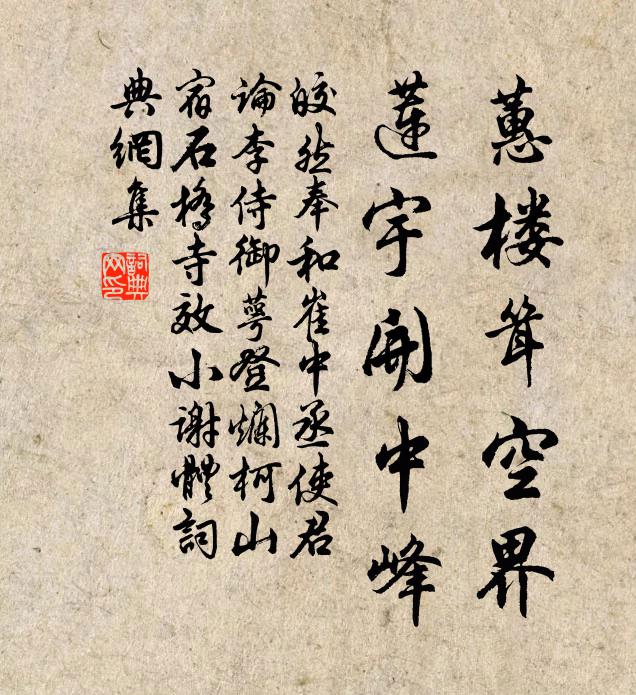 蕙楼耸空界
莲宇開中峰
皎然奉和崔中丞使君
論李侍御萼登爛柯山
宿石橋寺效小谢體詞
典網集
詞典網印